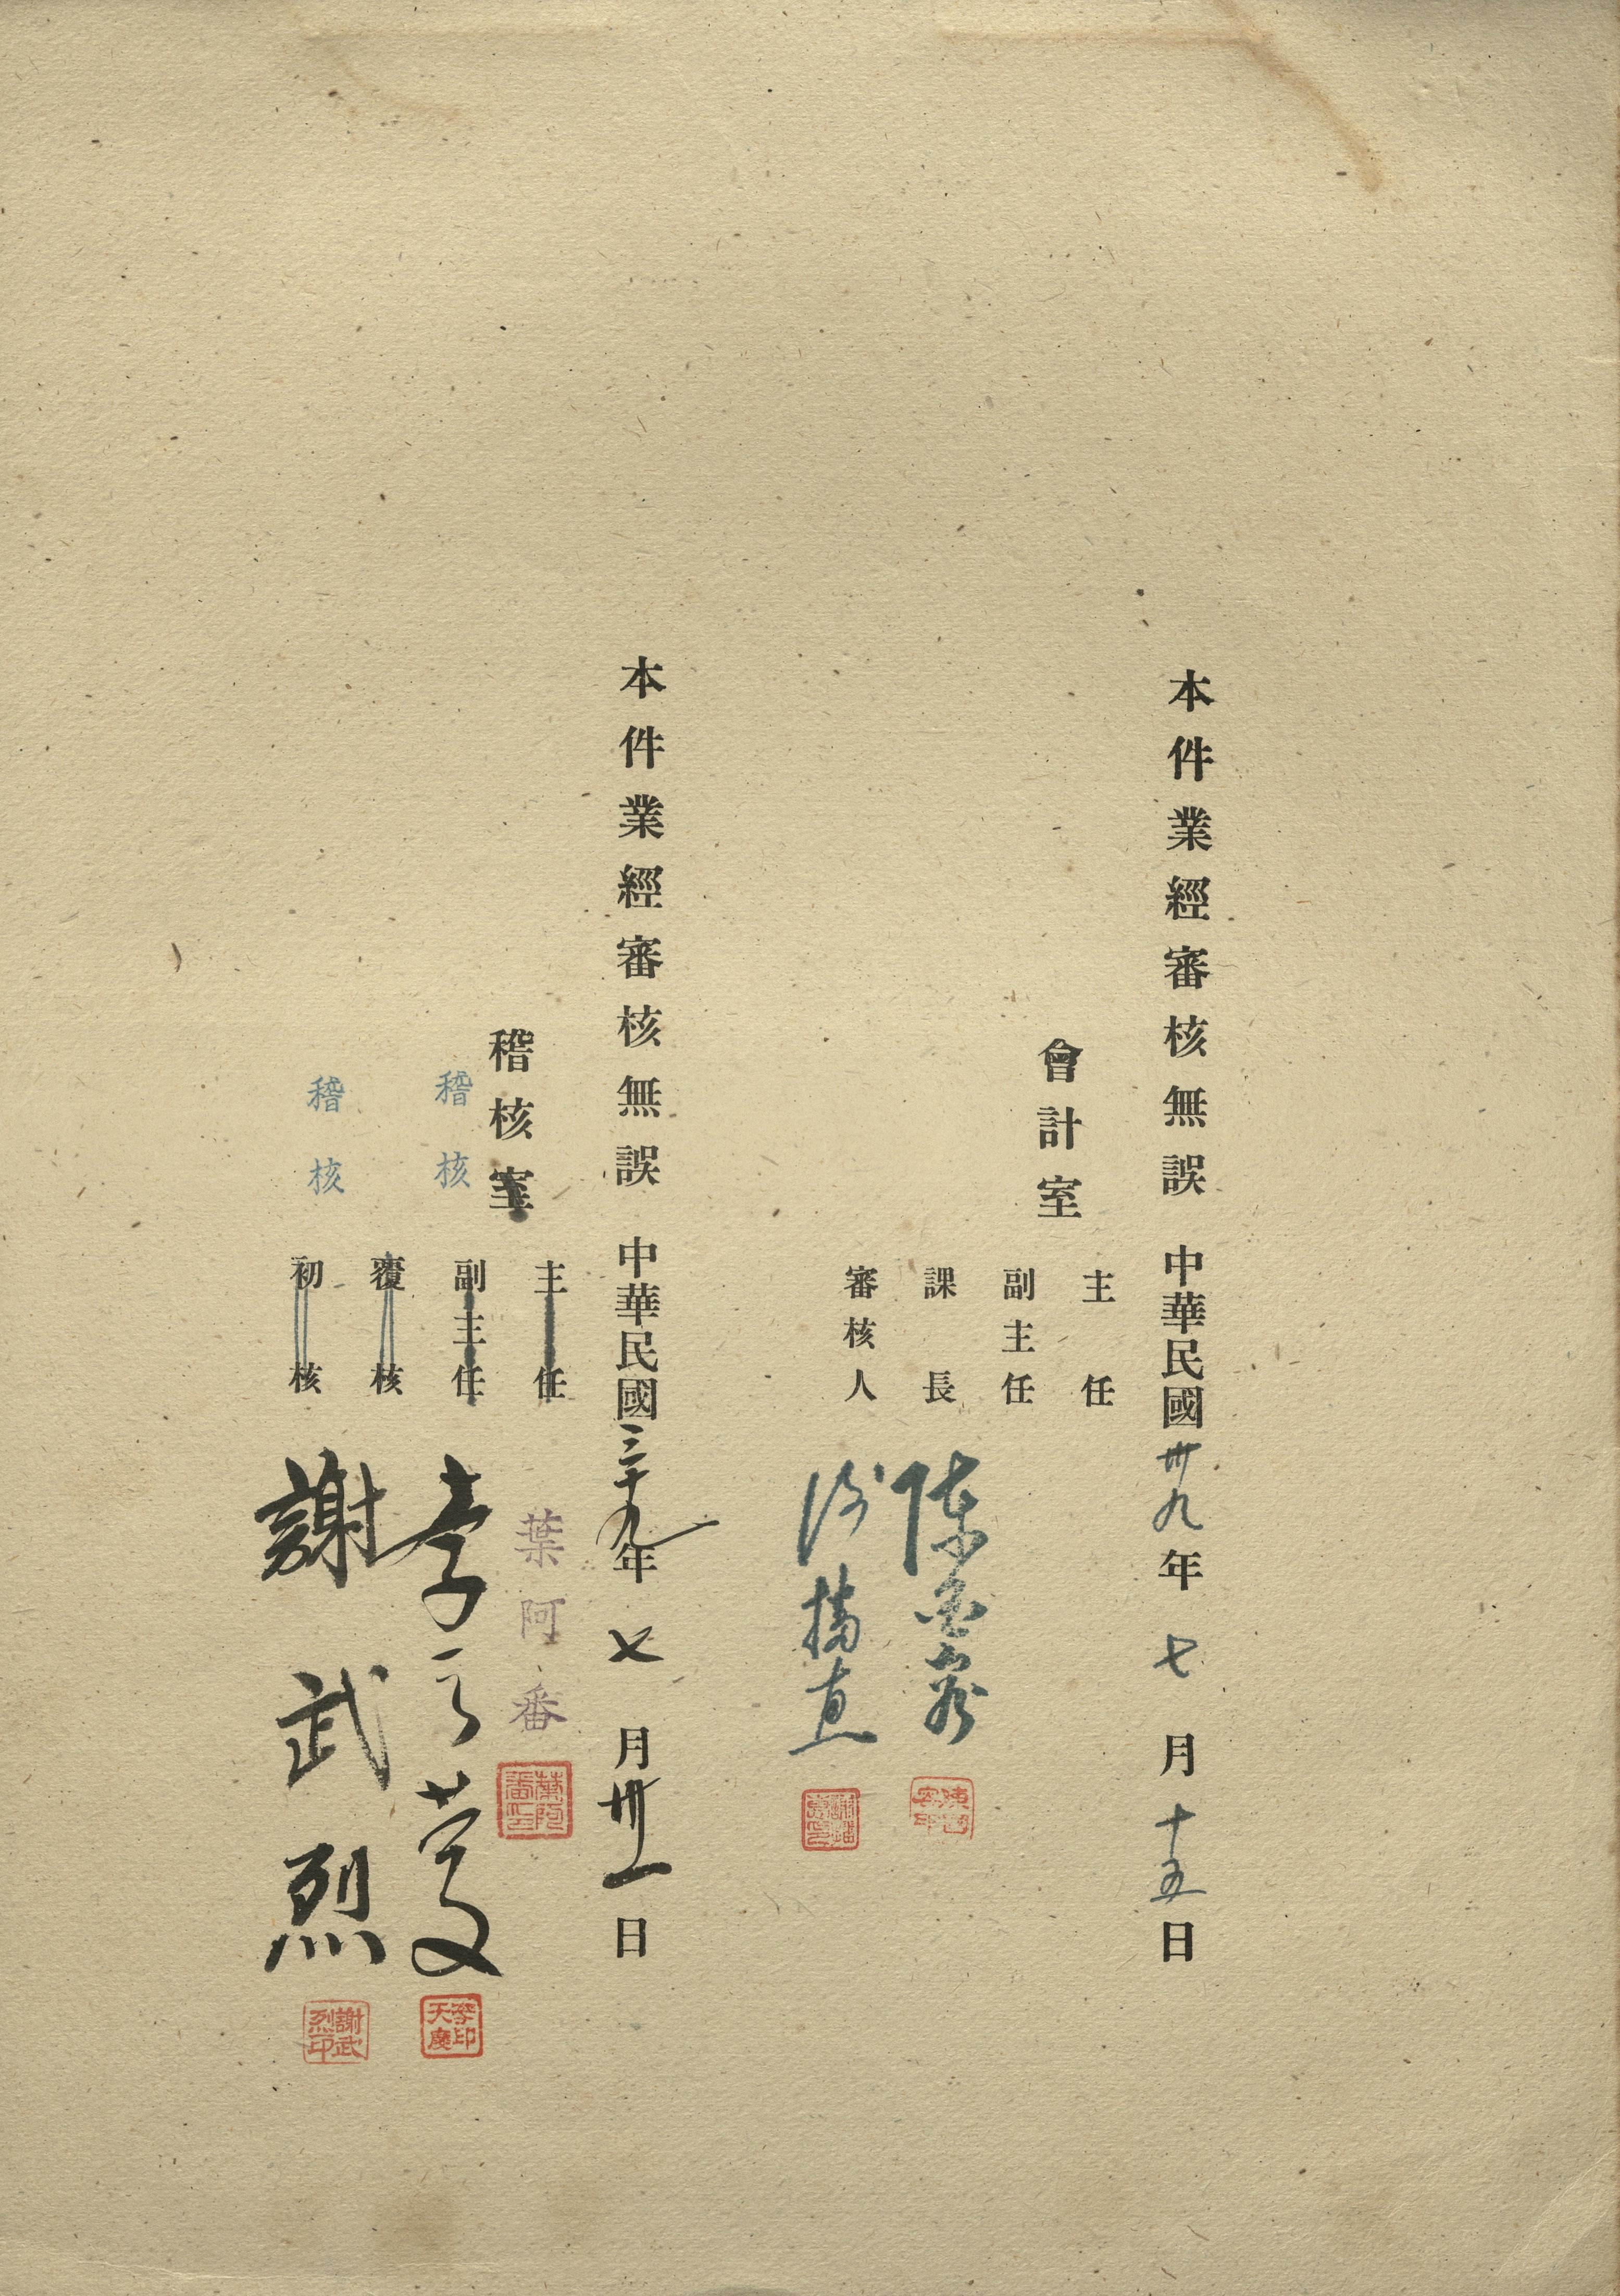 本件業經審核無誤 中華民國卅九年七月十五日
會計室
主任
副主任
課長 陳
審核人
本件業經審核無誤 中華民國三十九年七月卅一日
稽核室
主任
葉阿番
葉阿番印
稽核
副主任
李天慶
李印天慶
覆核
稽核
初核
謝武烈
謝武烈印